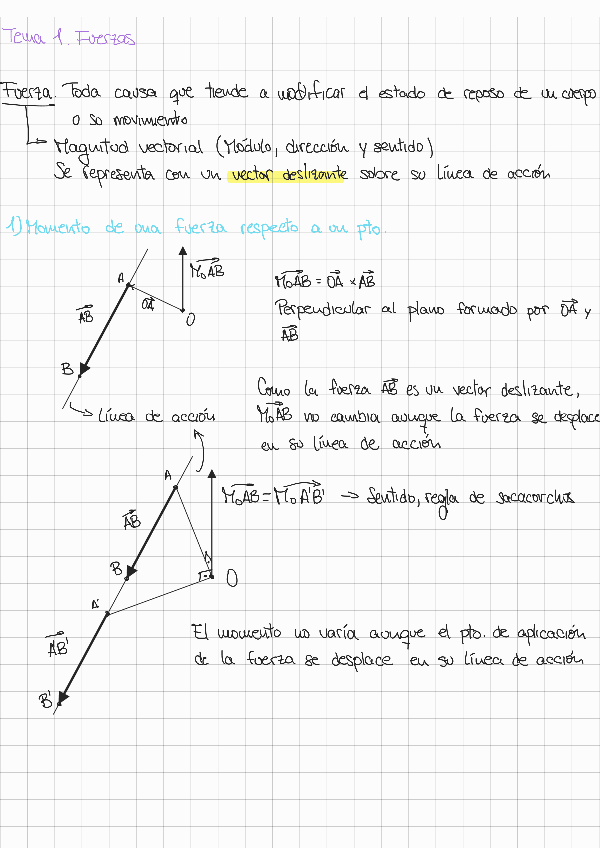 Tema 1. Fuerzas
Fuerza. Toda causa que tiende a modificar el estado de reposo de un cuerpo
o so movimiento
Magnitud vectorial (Módulo, dirección y sentido)
Se representa con un vector deslizante sobre su línea de acción
1) Momento de una fuerza respecto a un pto.
A
M₀AB
OA
AB
O
B
Línea de acción
M₀AB = OA × AB
Perpendicular al plano formado por OA y
AB
Como la fuerza AB es un vector deslizante,
M₀AB no cambia aunque la fuerza se desplace
en su línea de acción
A
M₀AB = M₀A'B' → Sentido, regla de sacacorchos
AB
B
O
A'
AB'
B'
El momento no varía aunque el pto. de aplicación
de la fuerza se desplace en su línea de acción